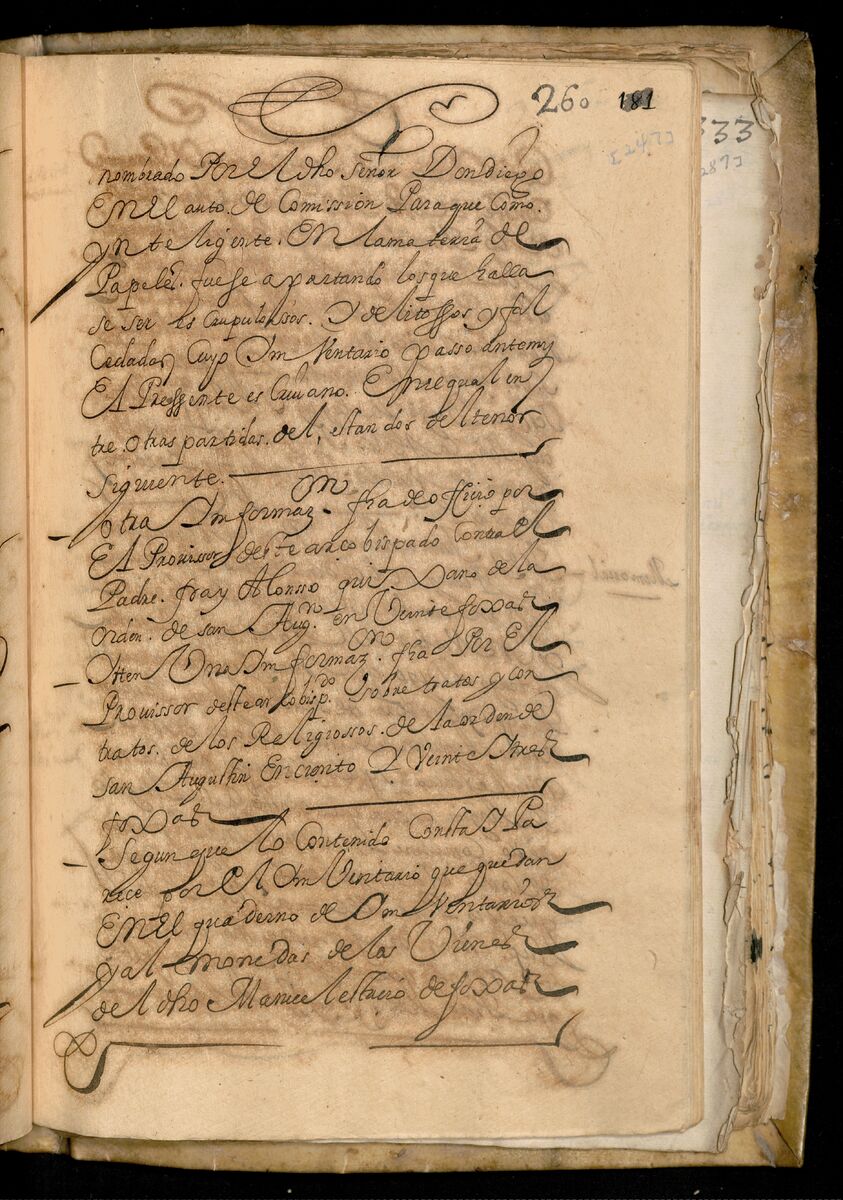 260 181
333
[247]
287]
nombrado Por el dho señor Don diego
En El auto. de Comission Para que Como.
ynteligente. En la materia de
Papeles. fuesse apartando los que halla
se ser escrupulossos. Y delitossos y fal
Cedados Cuyo Ymventario passo antemy
El Pressente escrivano. En el qual en
tre. otras partidas. del, estan dos del tenor
siguiente.
otra Ymformazon. fha de officio por
El Provissor deste arcobispado Contra El
Padre. fray Alonsso quixano de la
orden. de san Augn. en Veinte foxas
Ytten Una Ymformazon. fha Por El
Provissor deste arcobispdo. sobre tratos y con
tratos. de los Religiossos. de la orden de
san Augustin En ciento Y Veinte Y tres
foxas
Segun que lo Contenido Consta Y Pa
rece por el Ymventario que quedan
En El quaderno de Ymventarios
y almonedas de los Vienes
del dho Manuel de foxas